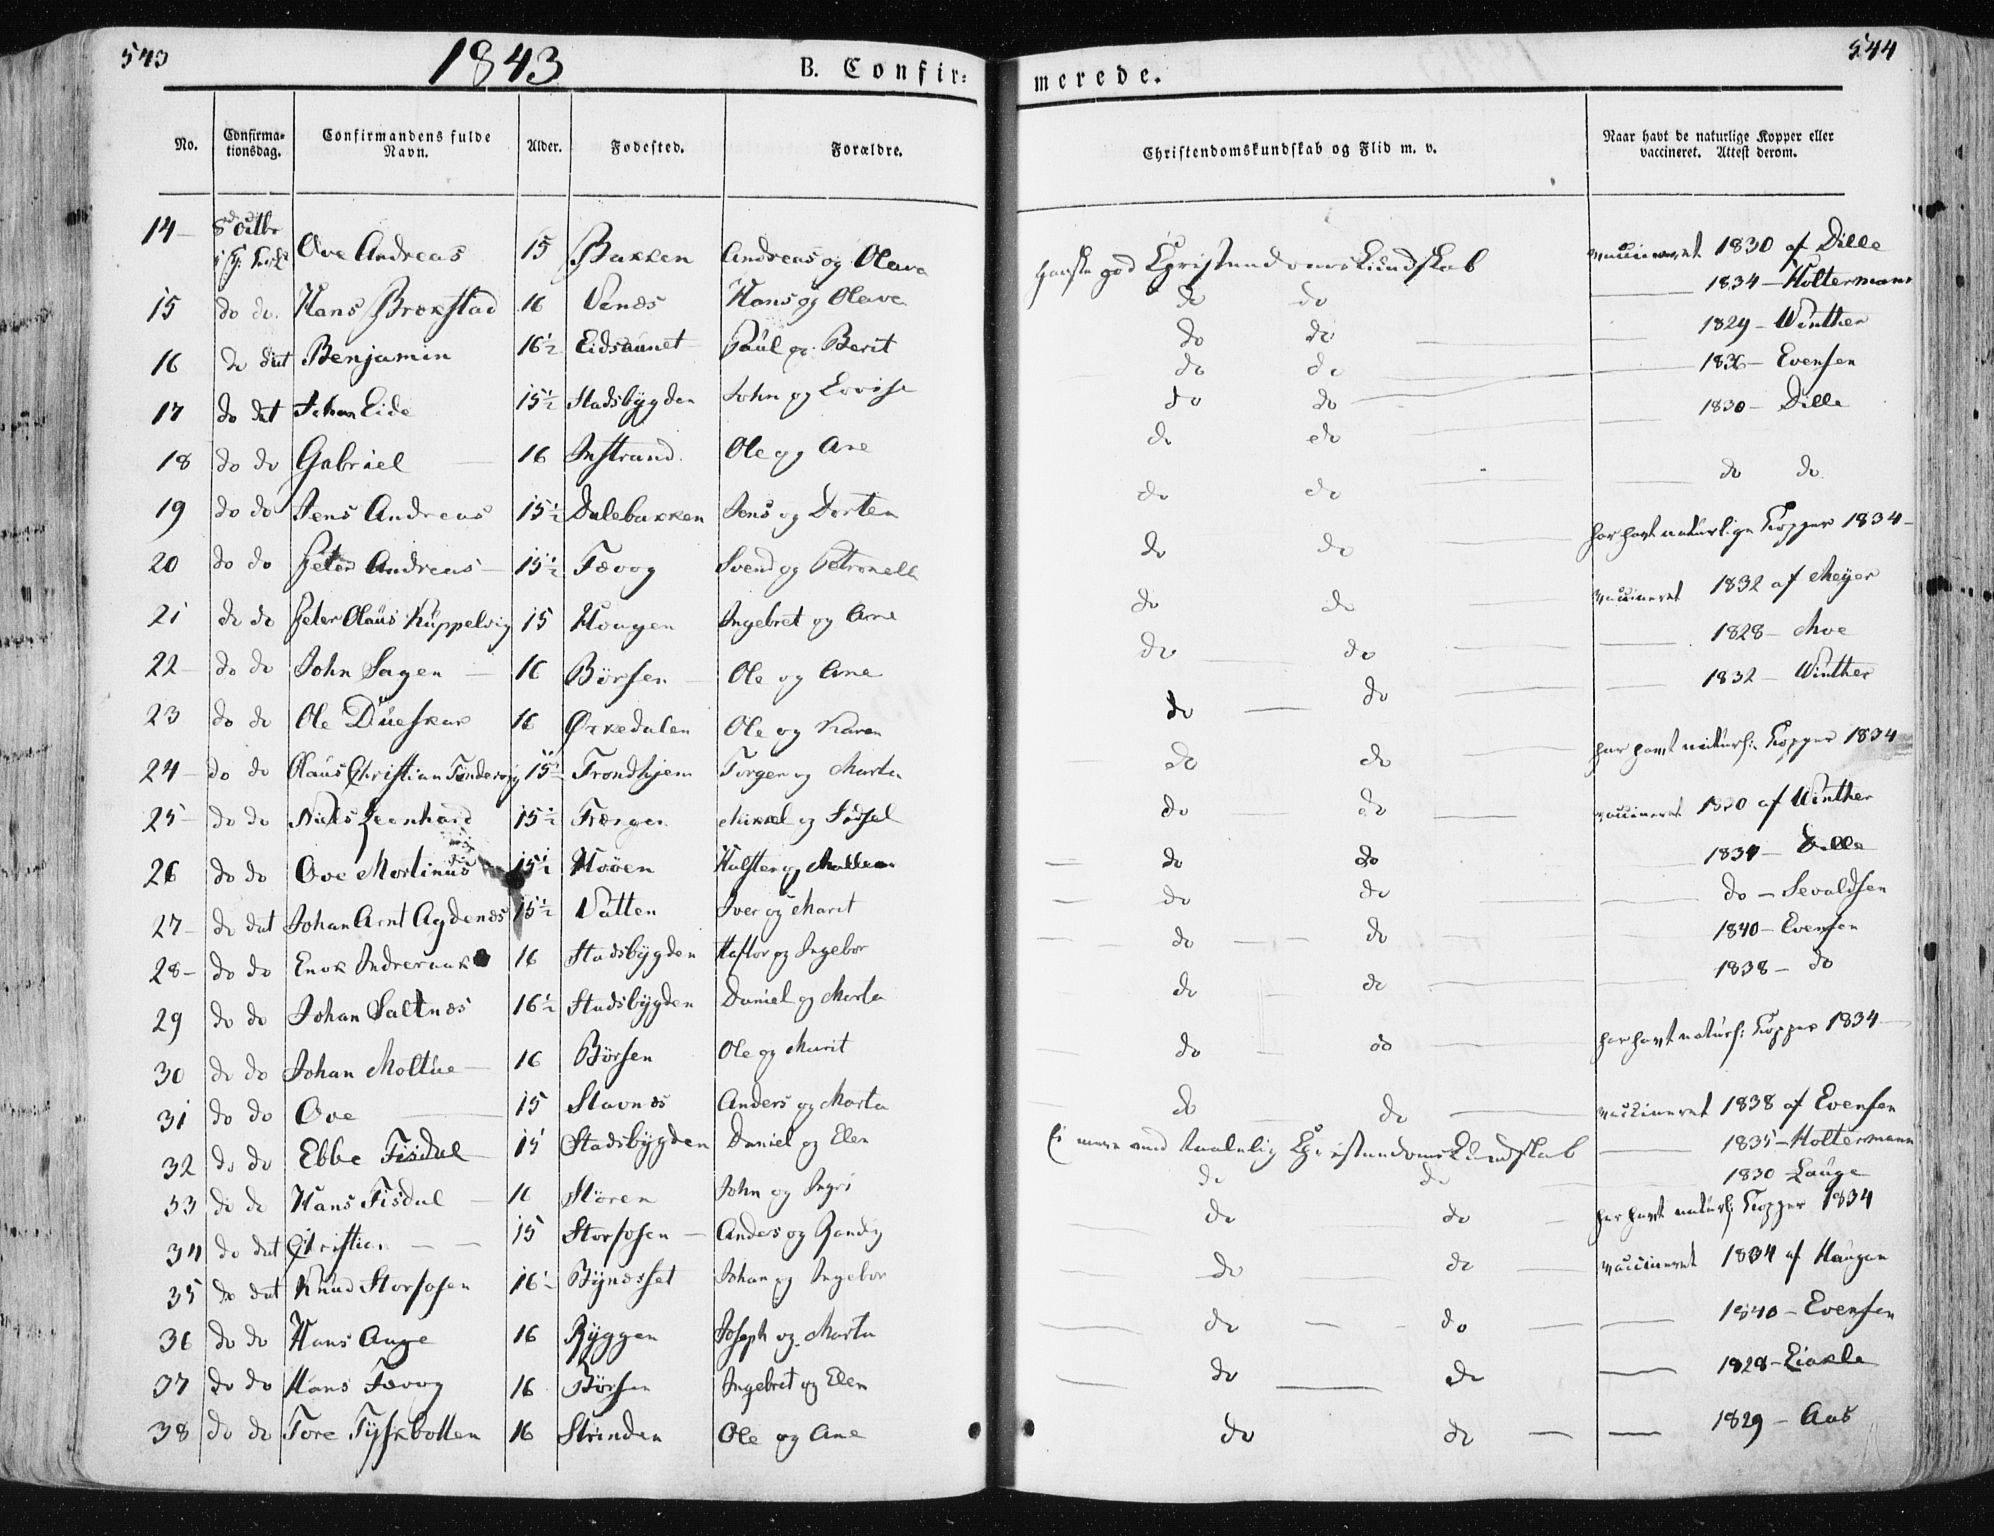 543
1843
B. Confir:
merede.
544
No.
Confirma-
tionsdag.
Confirmandens fulde
Navn.
Alder.
Fødested.
Forældre.
Christendomskundskab og Flid m. v.
Naar havt de naturlige Kopper eller
vaccineret. Attest derom.
14 Ove Andreas 15 Bakken Andreas og Olava Ganske god Christendomskundskab vaccineret 1830 af Dille
15 do do Hans Brekstad 16 Venæs Hans og Olava do do 1834 - Holtermann
16 do dit Benjamin 16½ Eidsaunet Paul og Berit do do 1829 - Winther
17 do dit Johan Eide 15½ Stadsbygden John og Lovise do do 1836 - Evensen
18 do do Gabriel 16 Instrand Ole og Ane do do 1830 - Dille
19 do do Jens Andreas 15½ Dalebakken Jens og Dorten do do do do
20 do do Peter Andreas 15½ Tævog Svend og Petronella do do har havt naturlige Kopper 1834
21 do do Peter Olaus Kuppelvig 15 Hougen Ingebret og Ane do do vaccineret 1832 af Meyer
22 do do John Sagen 16 Børsen Ole og Ane do do 1828 - Moe
23 do do Ole Dueskar 16 Ørkedalen Ole og Karen do do 1832 - Winther
24 do do Olaus Christian 15½ Trondhjem Torger og Marta do do har havt naturl: Kopper 1834
25 do do Niels Leonhard 15½ Mikkel og do do vaccineret 1830 af Winther
26 do do Ove Mortinus 15½ Hoøen og do do 1834 - Dille
27 do dit Johan Arnt Agdenes 15½ Vatten Iver og Marit do do do - Sevaldsen
28 do do Enok Indreraak 16 Stadsbygden Haftor og Ingebor do do 1840 - Evensen
29 do do Johan Saltnæs 16½ Stadsbygden Daniel og Marta do do 1838 - do
30 do do Johan Moltue 16 Børsen Ole og Marit do do har havt naturl: Kopper 1834
31 do do Ove 15 Stavnæs Anders og Marta do do vaccineret 1838 af Evensen
32 do do Ebbe Fisdal 15 Stadsbygden Daniel og Elen Ei mere end taalelig Christendomskundskab 1835 - Holtermann
33 do do Hans Fisdal 16 Støren John og Ingri do do 1830 Lauge
34 do dit Christian 15 Storfosen Anders og Randi do do har havt naturl: Kopper 1834
35 do dit Knud Storfosen 16½ Bynæsset Johan og Ingebor do do vaccineret 1834 af Haugan
36 do do Hans Auge 16 Ryggen Joseph og Marta do do 1840 - Evensen
37 do do Hans Tævog 16 Børsen Ingebret og Elen do do 1828 -
38 do do Tore Tyskbotten 16 Strinden Ole og Ane do do 1829 - Aas